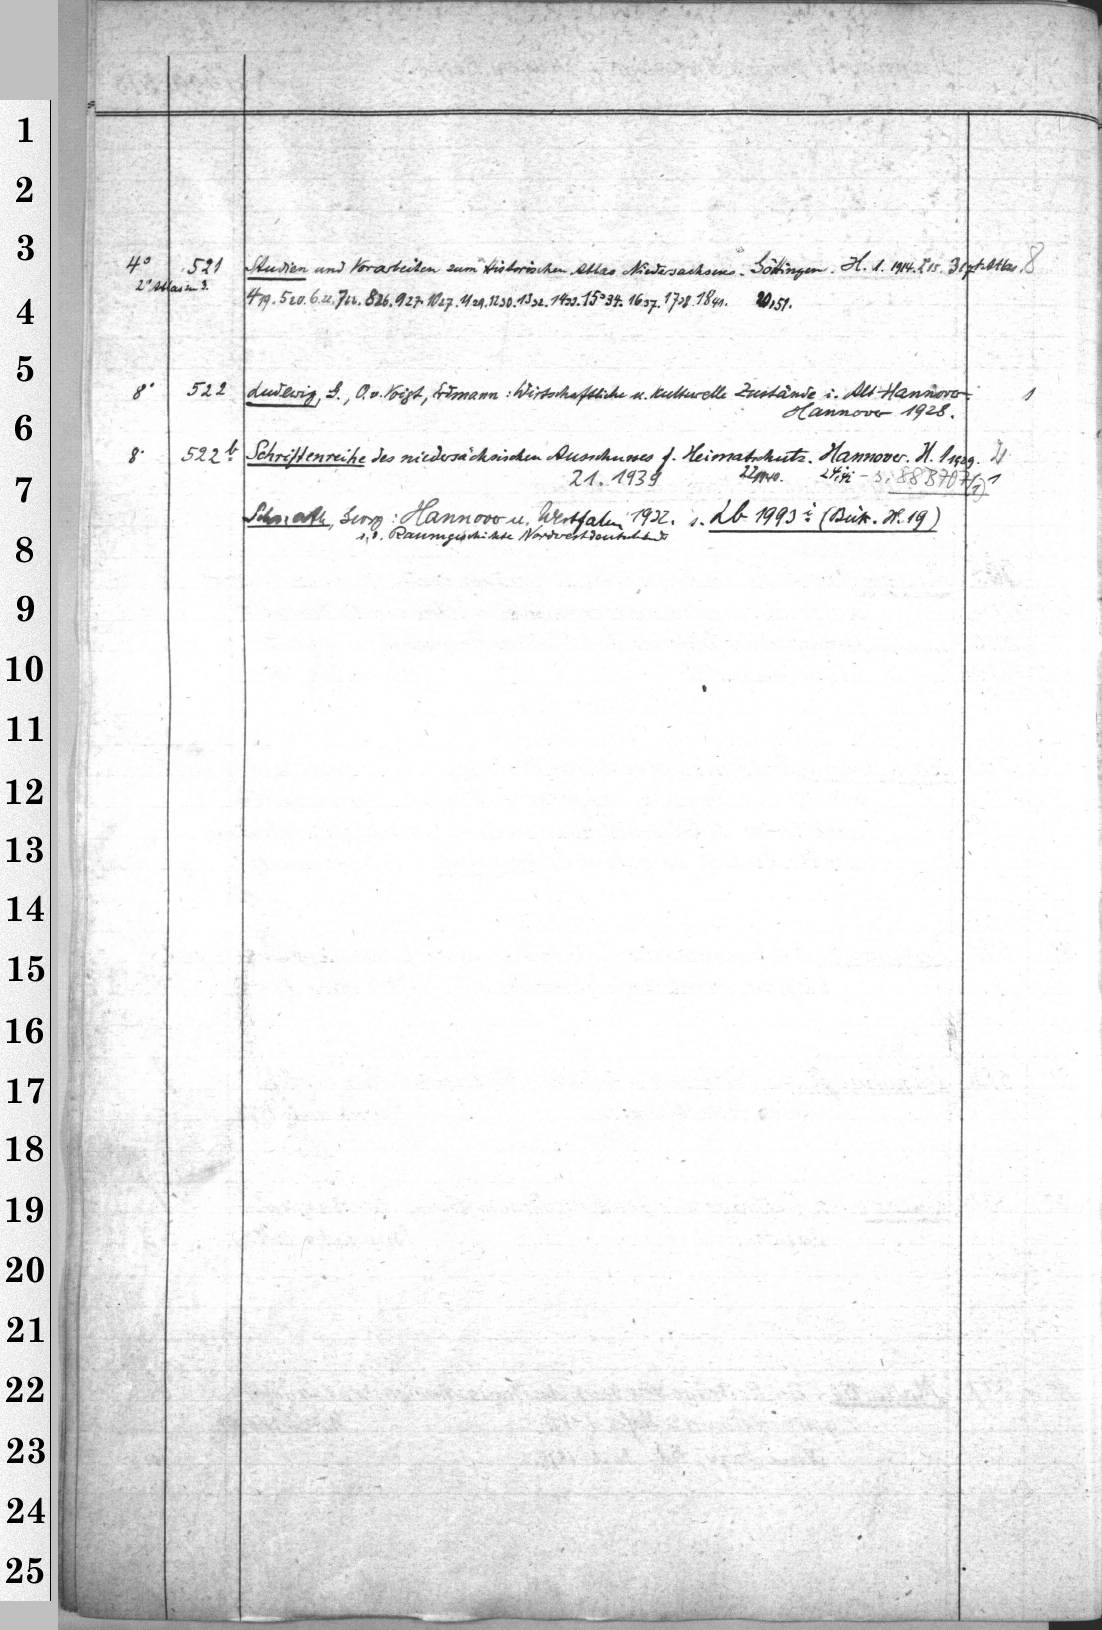 4° 521 Studien und Vorarbeiten zum Historischen Atlas Niedersachsens. Göttingen. H. 1. 1914. 2 15. 3 17 + Atlas. 8
2° Atlas zu 3.
4 19. 5 20. 6 22. 7 22. 8 26. 9 27. 10 27. 11 29. 12 30. 13 32. 14 33. 15 34. 16 37. 17 38. 18 41. 20, 51.
8° 522 Ludwig, G., O. v. Voigt, Erdmann: Wirtschaftliche u. kulturelle Zustände i. Alt-Hannover. 1
Hannover 1928.
8° 522b Schriftenreihe des niedersächsischen Ausschusses f. Heimatschutz. Hannover. H. 1 1929.
21. 1939 22 1940. 24, s. 888707 1
Schnath, Georg: Hannover u. Westfalen 1932. s. Lb 1993 i (H. 19)
s. o. Raumgeschichte Nordwestdeutschlands
1
2
3
4
5
6
7
8
9
10
11
12
13
14
15
16
17
18
19
20
21
22
23
24
25